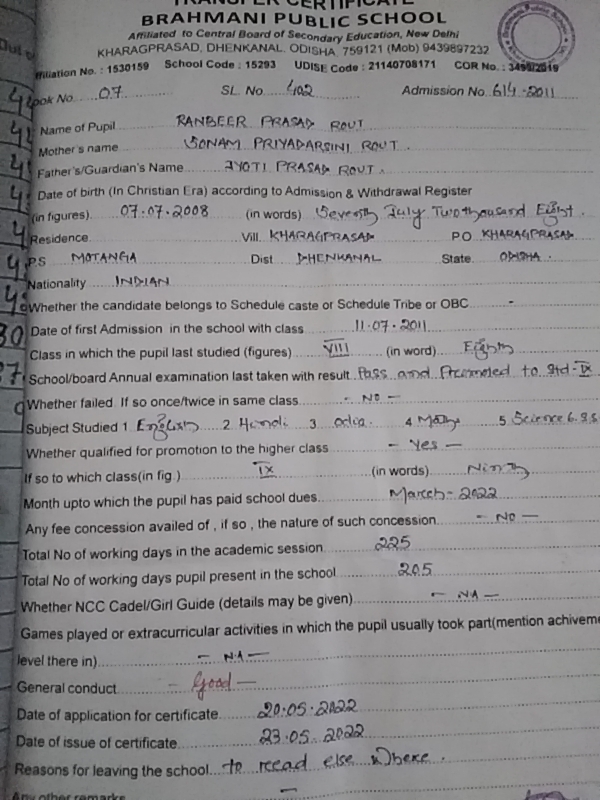 TRANSFER CERTIFICATE
BRAHMANI PUBLIC SCHOOL
Affiliated to Central Board of Secondary Education, New Delhi
KHARAGPRASAD, DHENKANAL, ODISHA, 759121 (Mob) 9439897232
ffiliation No. : 1530159 School Code : 15293 UDISE Code : 21140708171 COR No. : 3495/2019
ook No. 07 SL. No. 402 Admission No. 614-2011
Name of Pupil RANBEER PRASAD ROUT
Mother's name SONAM PRIYADARSINI ROUT.
Father's/Guardian's Name JYOTI PRASAD ROUT.
Date of birth (In Christian Era) according to Admission & Withdrawal Register
(in figures) 07.07.2008 (in words) Seventh July Two thousand Eight.
Residence Vill. KHARAGPRASAD PO KHARAGPRASAD
P.S MOTANGA Dist DHENKANAL State ODISHA.
Nationality INDIAN
Whether the candidate belongs to Schedule caste or Schedule Tribe or OBC -
Date of first Admission in the school with class 11.07.2011
Class in which the pupil last studied (figures) VIII (in word) Eighth
School/board Annual examination last taken with result Pass and Promoted to Std-IX
Whether failed. If so once/twice in same class - NO -
Subject Studied 1. English 2. Hindi 3. odia. 4. Math 5. Science 6. S.S
Whether qualified for promotion to the higher class - Yes -
If so to which class(in fig.) IX (in words) Ninth
Month upto which the pupil has paid school dues. March - 2022
Any fee concession availed of , if so , the nature of such concession - NO -
Total No of working days in the academic session 225
Total No of working days pupil present in the school 205
Whether NCC Cadel/Girl Guide (details may be given) - NA -
Games played or extracurricular activities in which the pupil usually took part(mention achiveme
level there in) - NA -
General conduct - Good -
Date of application for certificate 20.05.2022
Date of issue of certificate 23.05.2022
Reasons for leaving the school to read else where.
Any other remarks -